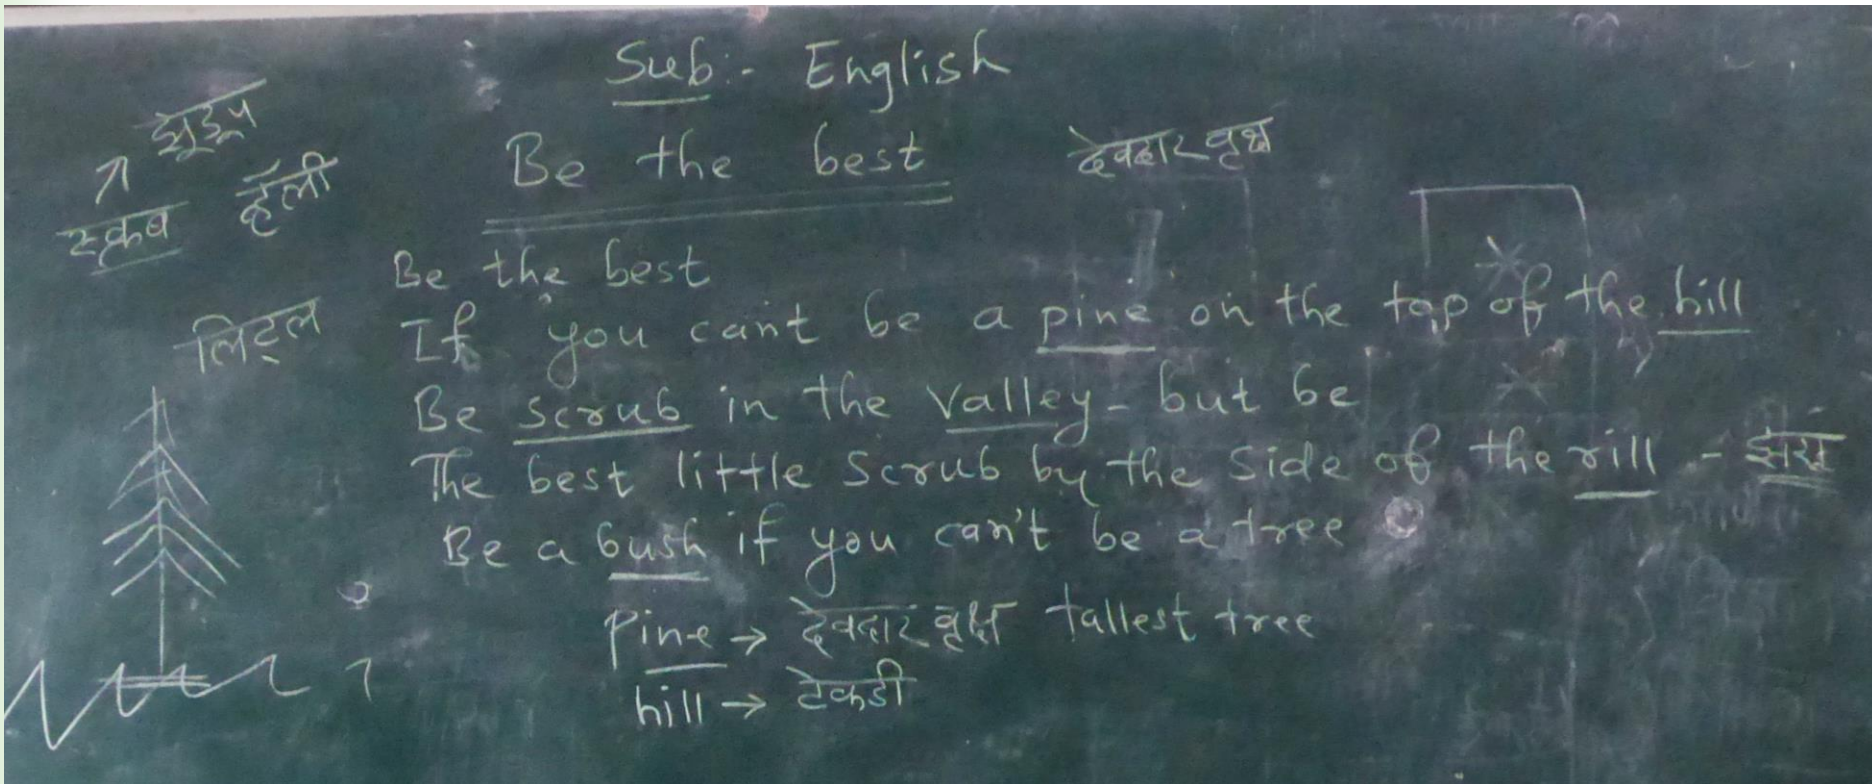 Sub:- English
झुडूप
Be the best
देवदार वृक्ष
स्क्रब
व्हॅली
Be the best
If you can't be a pine on the top of the hill
लिटल
Be scrub in the valley - but be
The best little scrub by the side of the rill -
Be a bush if you can't be a tree
Pine → देवदार वृक्ष tallest tree
hill → टेकडी